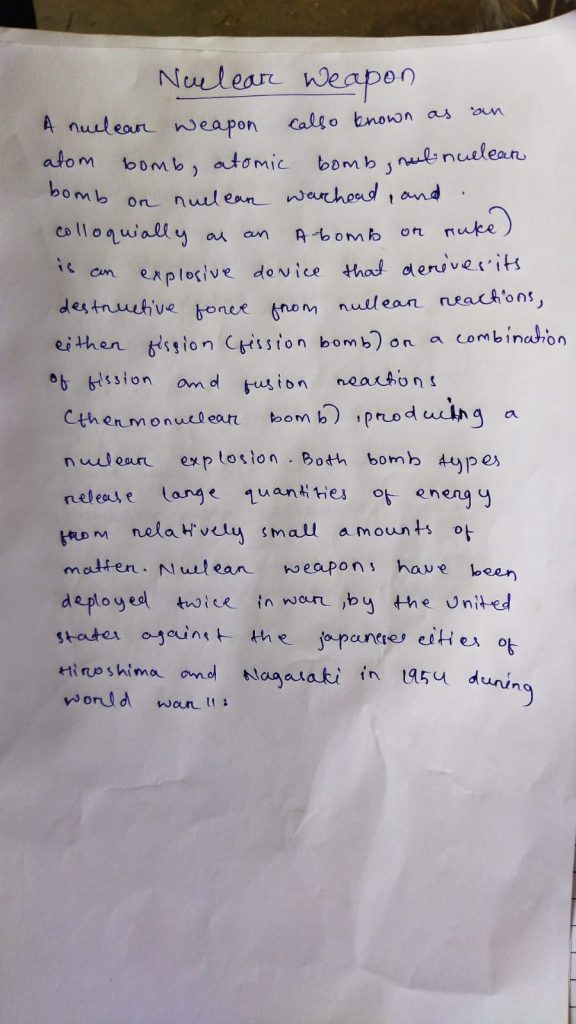 Nuclear Weapon
A nuclear weapon (also known as an
atom bomb, atomic bomb, nuclear
bomb or nuclear warhead, and
colloquially as an A-bomb or nuke)
is an explosive device that derives its
destructive force from nuclear reactions,
either fission (fission bomb) or a combination
of fission and fusion reactions
(thermonuclear bomb), producing a
nuclear explosion. Both bomb types
release large quantities of energy
from relatively small amounts of
matter. Nuclear weapons have been
deployed twice in war, by the United
states against the japanese cities of
Hiroshima and Nagasaki in 1954 during
world war II.